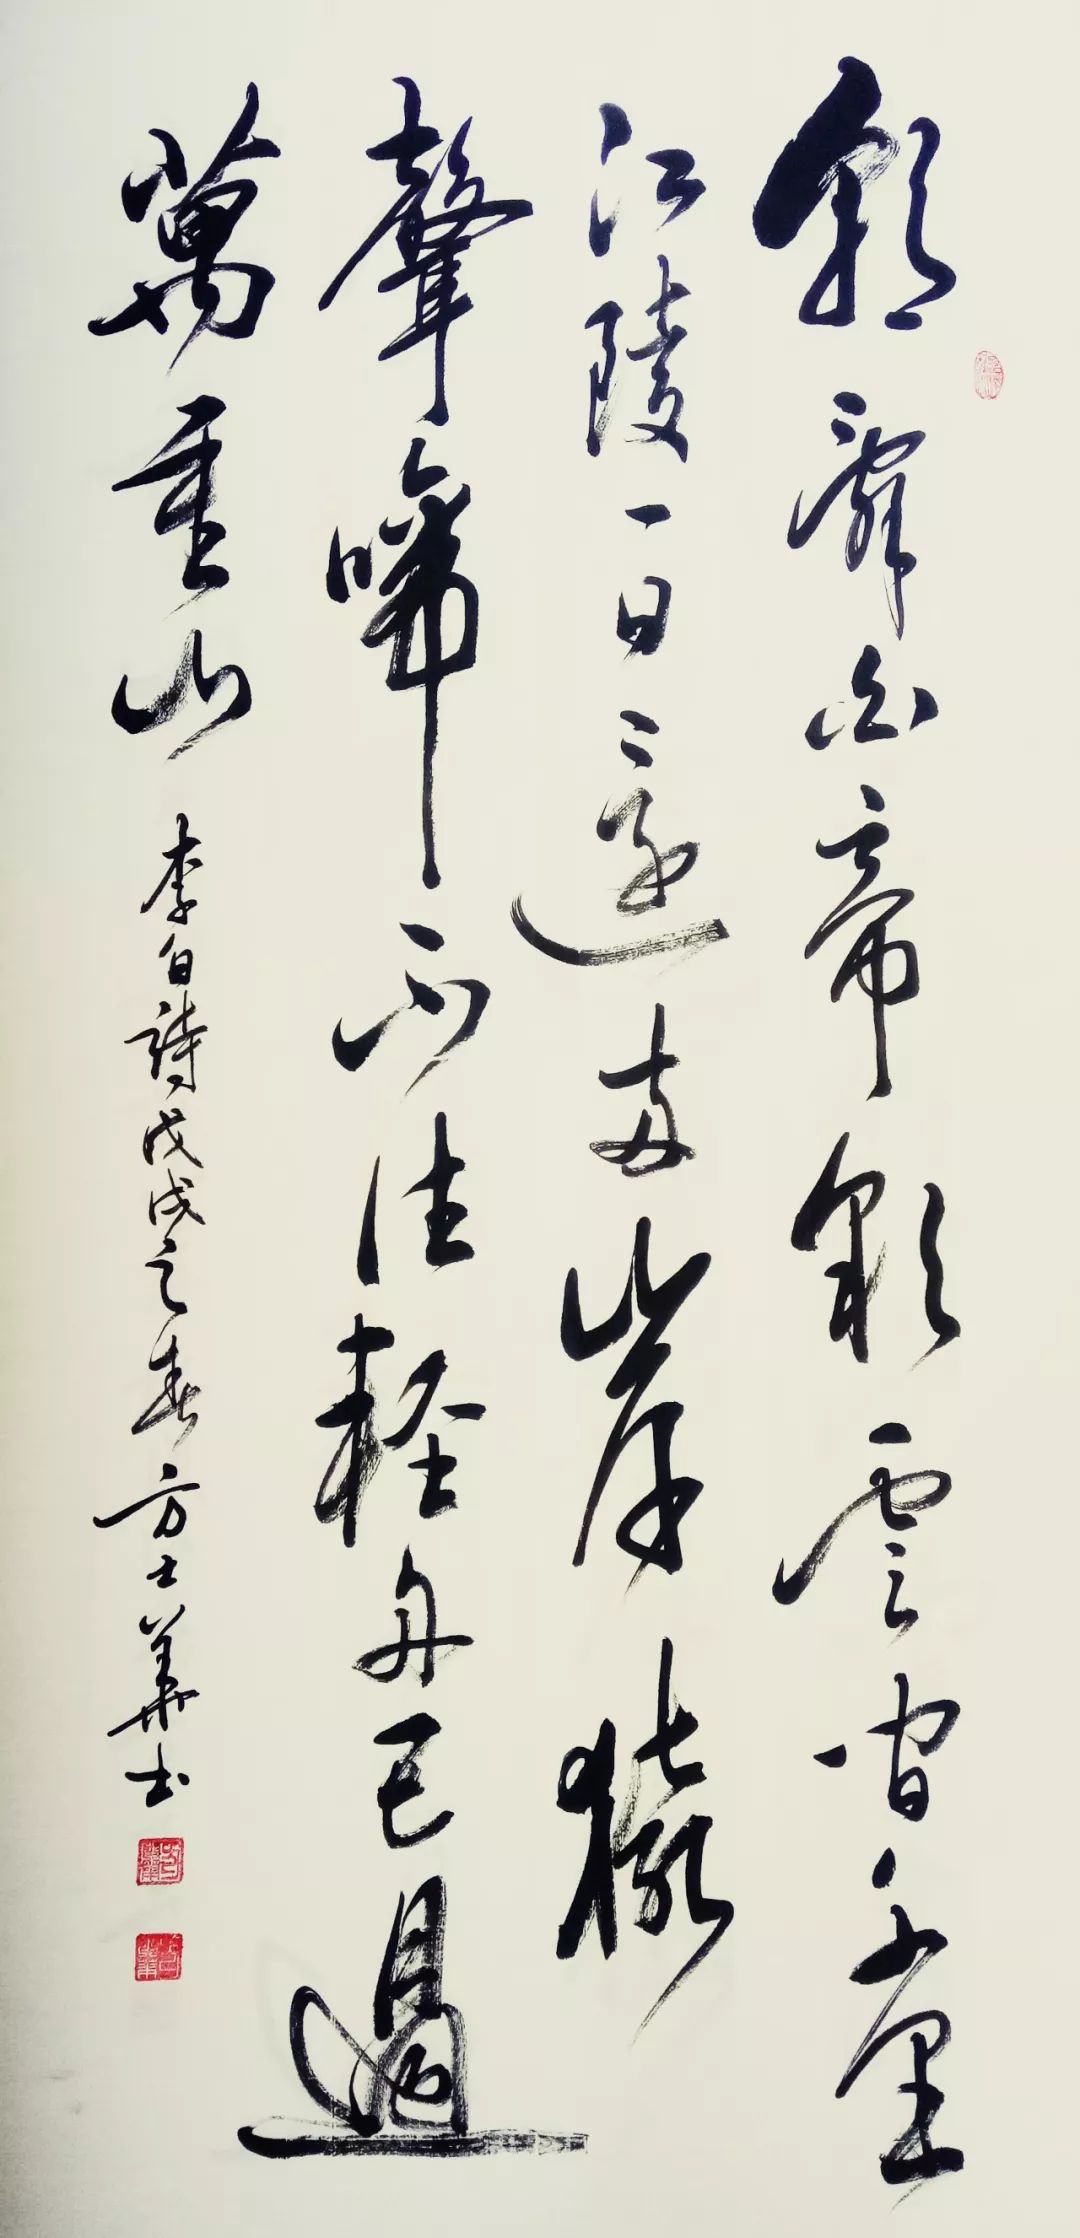 朝辭白帝彩雲間千里
江陵一日還兩岸猿
聲啼不住輕舟已過
萬重山 李白詩戊戌之春方士華书